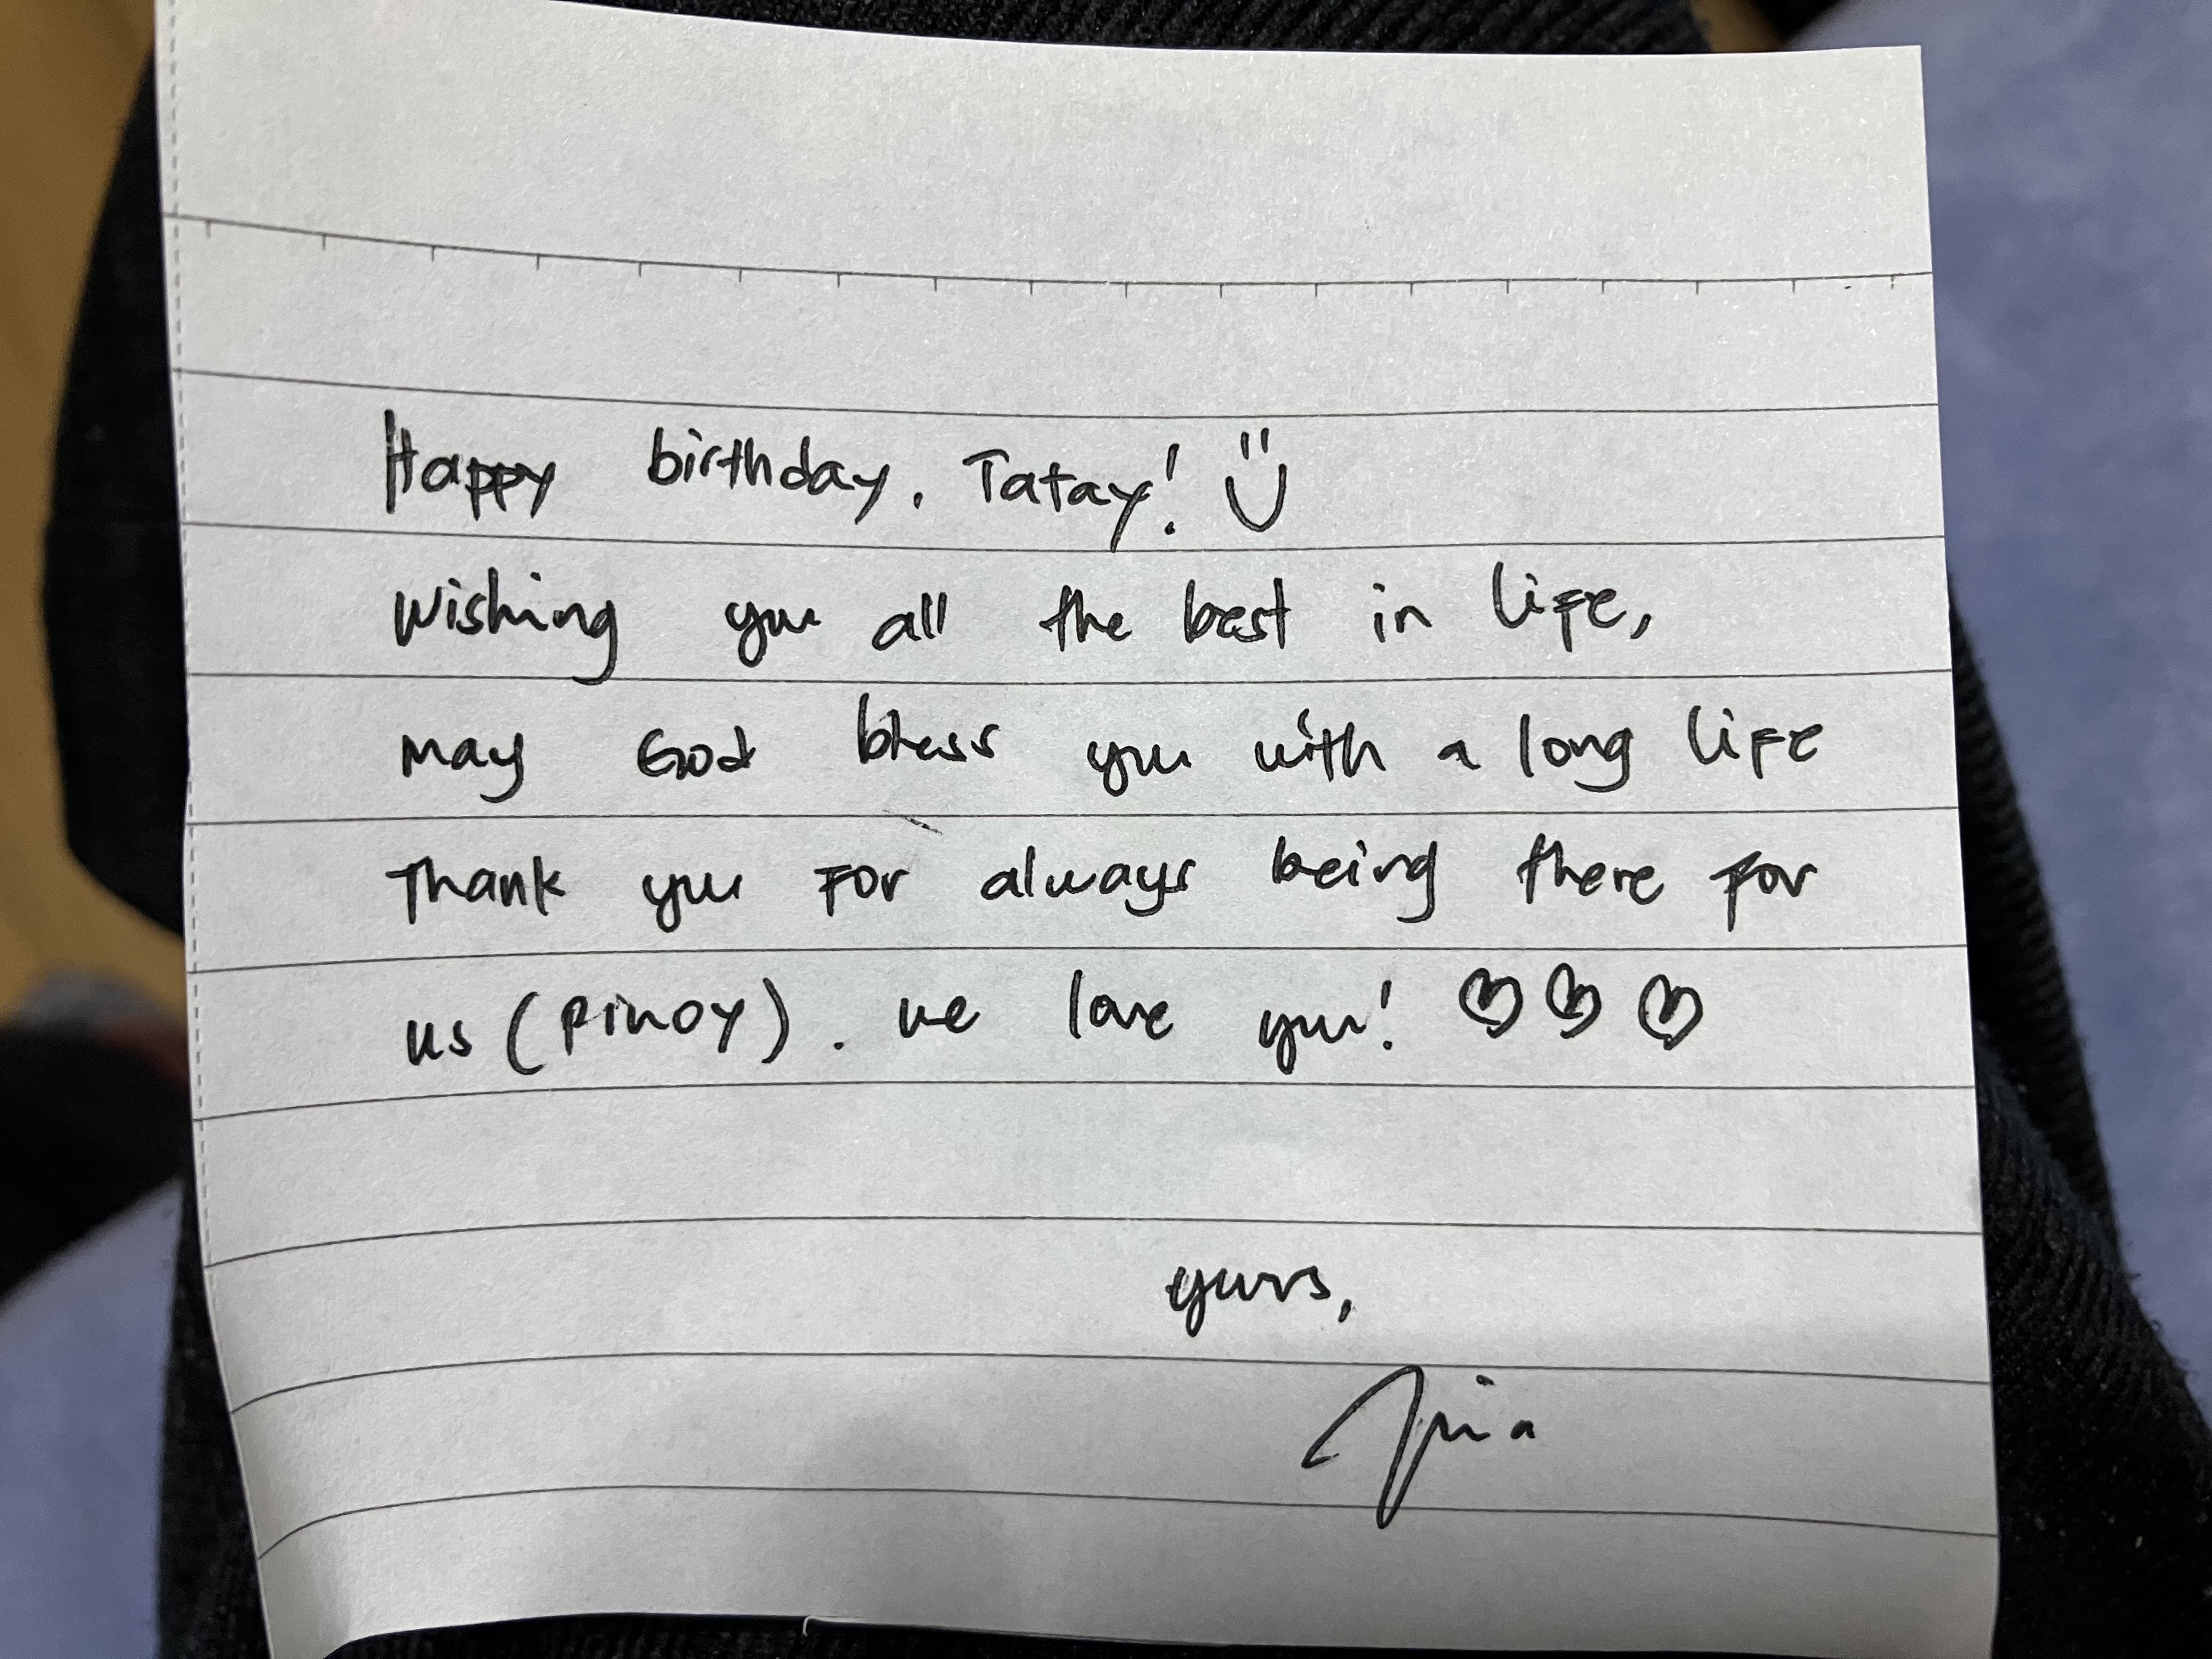 Happy birthday, Tatay! Ü
Wishing you all the best in life,
may God bless you with a long life
Thank you for always being there for
us (pinoy). we love you! ♡ ♡ ♡
yours,